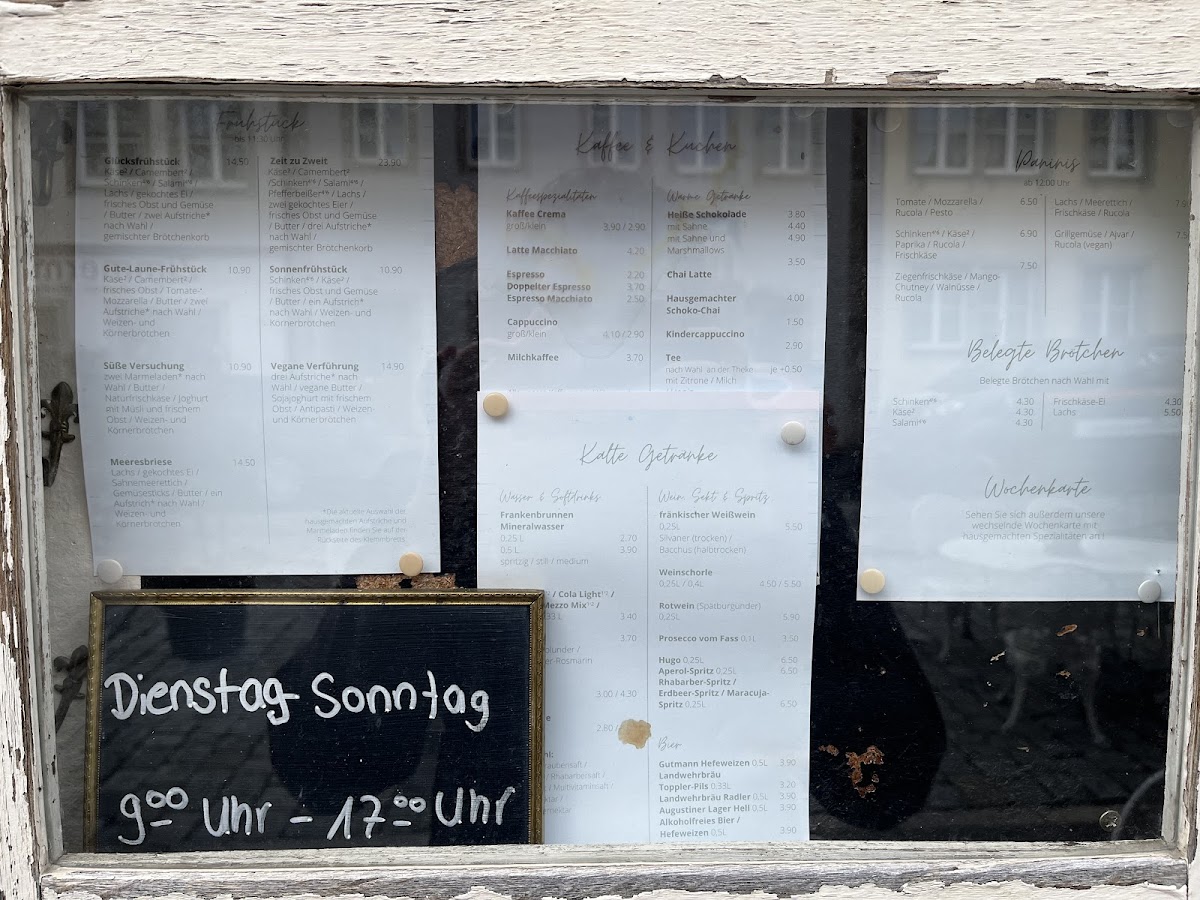 Frühstück
bis 11:30 Uhr
Glücksfrühstück 14.50
Käse² / Camembert² /
Schinken / Salami /
Lachs / gekochtes Ei /
frisches Obst und Gemüse
/ Butter / zwei Aufstriche*
nach Wahl /
gemischter Brötchenkorb
Gute-Laune-Frühstück 10.90
Käse² / Camembert² /
frisches Obst / Tomate-
Mozzarella / Butter / zwei
Aufstriche* nach Wahl /
Weizen- und
Körnerbrötchen
Süße Versuchung 10.90
zwei Marmeladen* nach
Wahl / Butter /
Naturfrischkäse / Joghurt
mit Müsli und frischem
Obst / Weizen- und
Körnerbrötchen
Meeresbriese 14.50
Lachs / gekochtes Ei /
Sahnemeerettich /
Gemüsesticks / Butter / ein
Aufstrich* nach Wahl /
Weizen- und
Körnerbrötchen
Zeit zu Zweit 23.90
Käse² / Camembert²
/Schinken / Salami /
Pfefferbeißer / Lachs /
zwei gekochtes Eier /
frisches Obst und Gemüse
/ Butter / drei Aufstriche*
nach Wahl /
gemischter Brötchenkorb
Sonnenfrühstück 10.90
Schinken / Käse² /
frisches Obst und Gemüse
/ Butter / ein Aufstrich*
nach Wahl / Weizen- und
Körnerbrötchen
Vegane Verführung 14.90
drei Aufstriche* nach
Wahl / vegane Butter /
Sojajoghurt mit frischem
Obst / Antipasti / Weizen-
und Körnerbrötchen
*Die aktuelle Auswahl der
hausgemachten Aufstriche und
Marmeladen finden Sie auf der
Rückseite des Klemmbretts
Kaffee & Kuchen
Kaffeespezialitäten
Kaffee Crema
groß/klein 3.90 / 2.90
Latte Macchiato 4.20
Espresso 2.20
Doppelter Espresso 3.70
Espresso Macchiato 2.50
Cappuccino
groß/klein 4.10 / 2.90
Milchkaffee 3.70
Warme Getränke
Heiße Schokolade 3.80
mit Sahne 4.40
mit Sahne und 4.90
Marshmallows
3.50
Chai Latte
Hausgemachter 4.00
Schoko-Chai
1.50
Kindercappuccino
2.90
Tee
nach Wahl an der Theke je +0.50
mit Zitrone / Milch
Kalte Getränke
Wasser & Softdrinks
Frankenbrunnen
Mineralwasser
0,25 L 2.70
0,5 L 3.90
spritzig / still / medium
/ Cola Light /
Mezzo Mix /
3.40
3.70
3.00 / 4.30
2.80 /
Wein, Sekt & Spritz
fränkischer Weißwein
0,25L 5.50
Silvaner (trocken) /
Bacchus (halbtrocken)
Weinschorle
0,25L / 0,4L 4.50 / 5.50
Rotwein (Spätburgunder)
0,25L 5.90
Prosecco vom Fass 0,1L 3.50
Hugo 0,25L 6.50
Aperol-Spritz 0,25L 6.50
Rhabarber-Spritz /
Erdbeer-Spritz / Maracuja-
Spritz 0,25L 6.50
Bier
Gutmann Hefeweizen 0,5L 3.90
Landwehrbräu
Toppler-Pils 0,33L 3.20
Landwehrbräu Radler 0,5L 3.90
Augustiner Lager Hell 0,5L 3.90
Alkoholfreies Bier /
Hefeweizen 0,5L 3.90
Paninis
ab 12:00 Uhr
Tomate / Mozzarella / 6.50
Rucola / Pesto
Schinken / Käse² / 6.90
Paprika / Rucola /
Frischkäse
7.50
Ziegenfrischkäse / Mango-
Chutney / Walnüsse /
Rucola
Lachs / Meerettich /
Frischkäse / Rucola
Grillgemüse / Ajvar /
Rucola (vegan)
Belegte Brötchen
Belegte Brötchen nach Wahl mit
Schinken 4.30
Käse² 4.30
Salami 4.30
Frischkäse-Ei 4.30
Lachs 5.50
Wochenkarte
Sehen Sie sich außerdem unsere
wechselnde Wochenkarte mit
hausgemachten Spezialitäten an!
Dienstag-Sonntag
9⁰⁰ Uhr - 17⁰⁰ Uhr